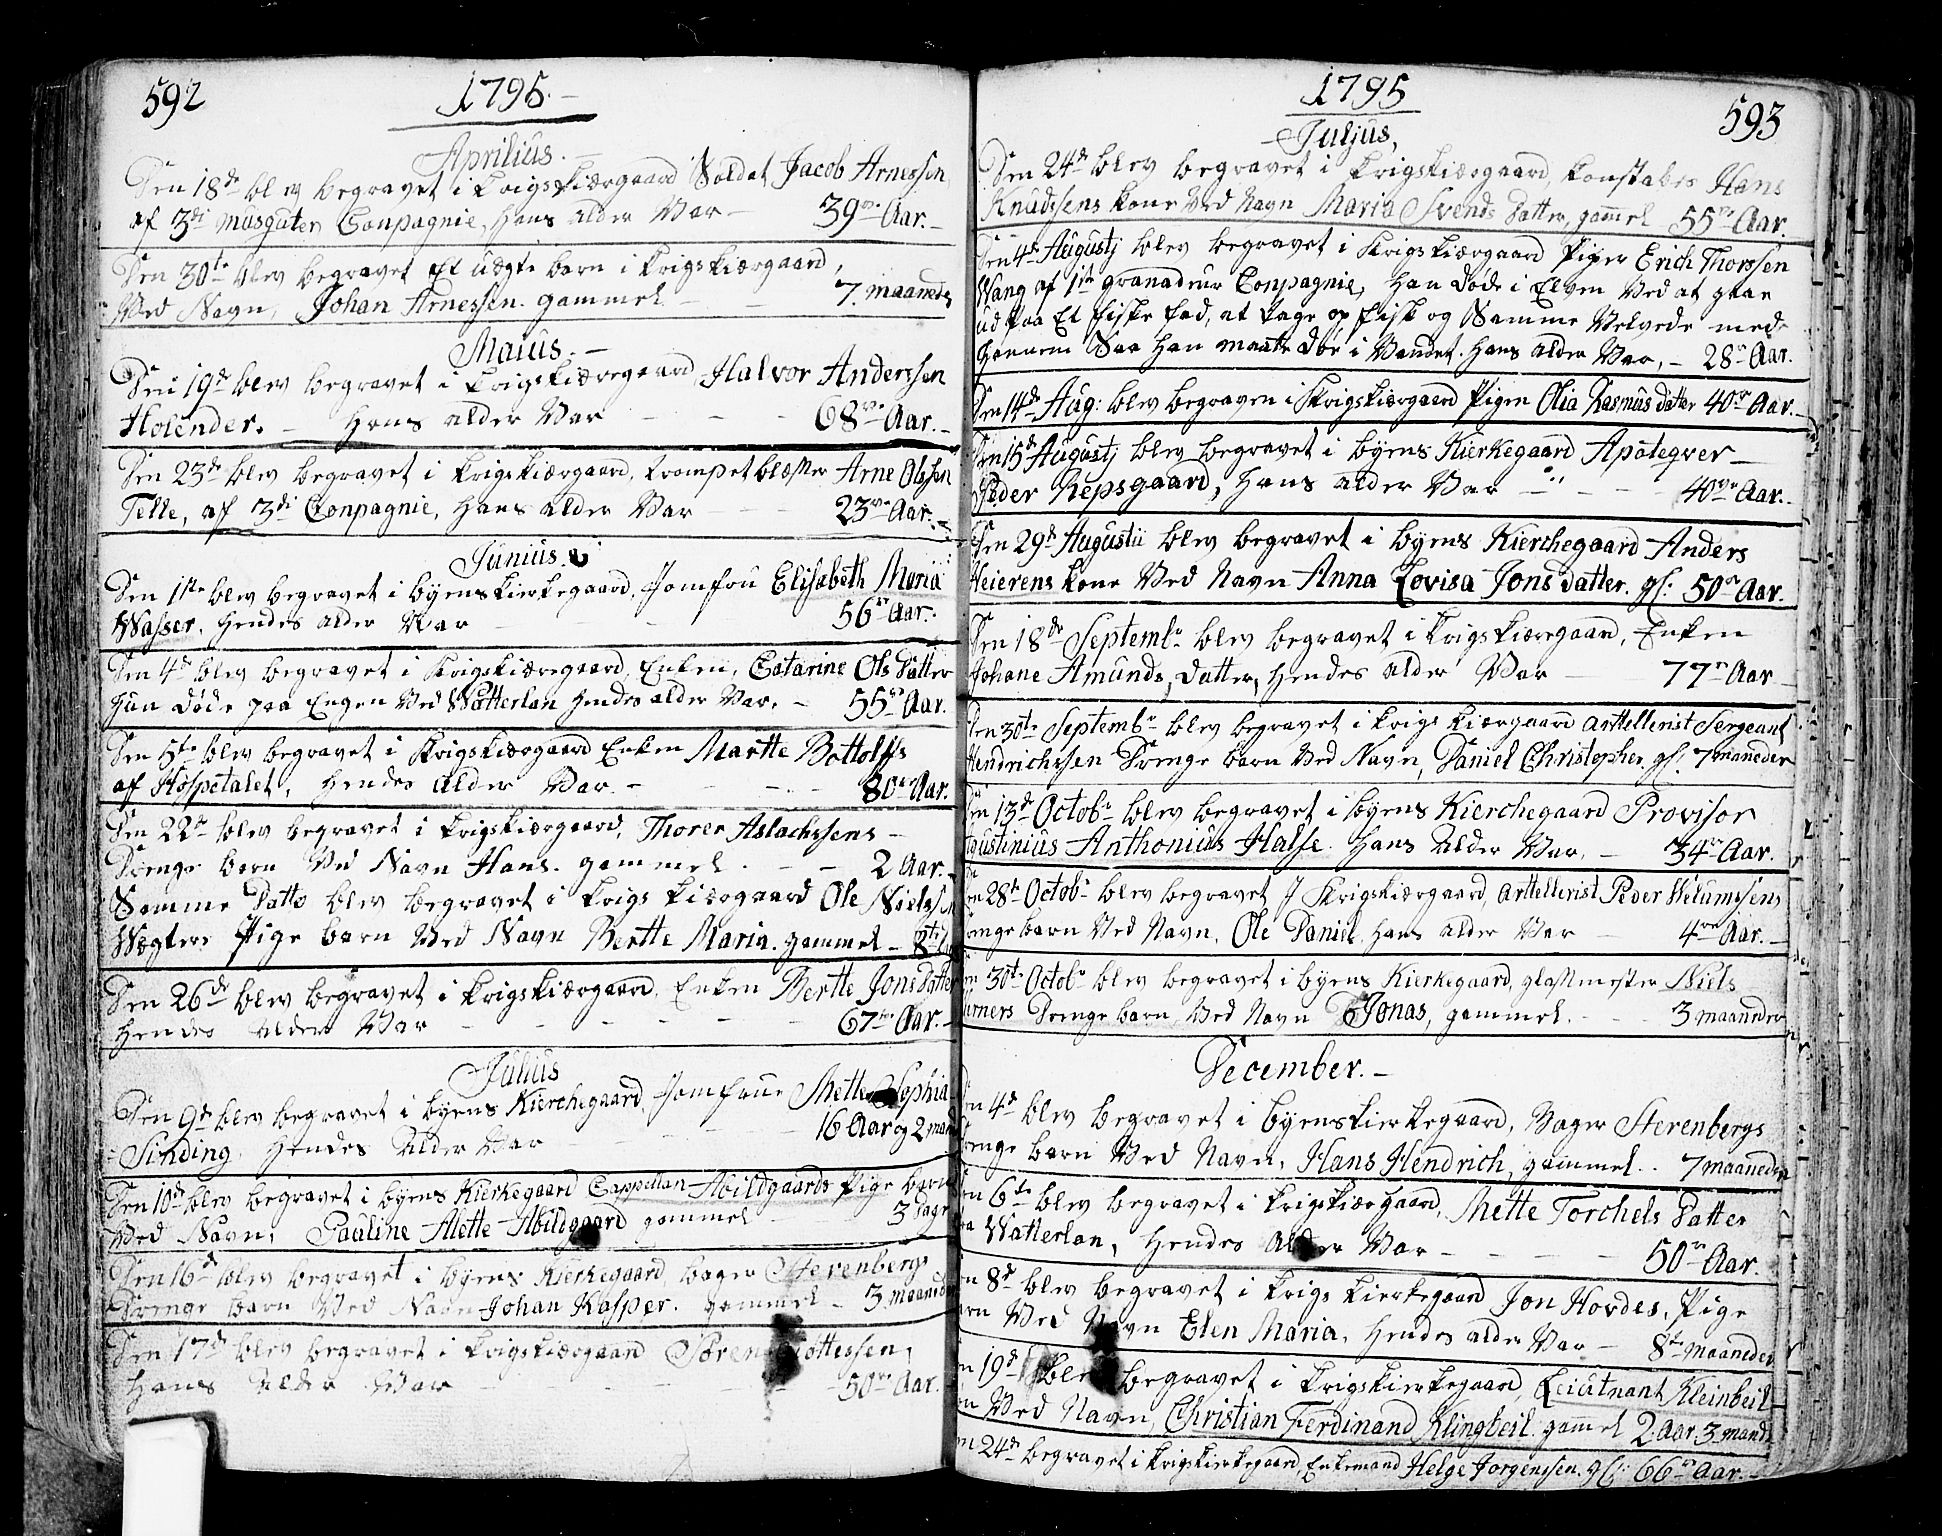 592
1795.
Aprilius.
Den 18de blev begravet i Krigskiærgaard Soldat Jacob Arnessen
af 3di musquter Conpagnie, hans alder Var 39ve Aar.
Den 30te blev begravet Et uægte barn i Krigskiærgaard,
Ved Navn, Johan Arnessen. gammel 7. maaneder
Maius.
Den 19de blev begravet i Krigskiæregaard, Halvor Anderssen
Holender. hans alder Var 68ve Aar.
Den 23de blev begravet i Krigskiærgaard, trompetblæsser Arne Olssen
Telle, af 3di Conpagnie, hans alder Var 23ve Aar.
Junius.
Den 1ste blev begravet i byens kierkegaard, Jomfru Elisabeth Maria
Wasser, hendes alder Var 56ve Aar.
Den 4de blev begravet i Krigskiæregaard, Enken, Catarine Ols Datter
hun døde paa Engen Ved Watterlan hendes alder Var. 55ve Aar.
Den 5te blev begravet i Krigskiærgaard Enken Martte Bottolffs
af Hospetalet, hendes alder Var. 80ve Aar.
Den 22de blev begravet i Krigskiærgaard, Thorer Aslachssens
Drenge barn Ved Navn Hans. gammel 2 Aar.
Samme Datto blev begravet i Krigs kiærgaard Ole Nielssen
Wegters Pige barn Ved Navn Bertte Maria. gammel 8te
Den 26de blev begravet i Krigskiærgaard. Enken Bertte Jons Datter
hendes alder Var 67ve Aar.
Julius
Den 9de blev begravet i byens Kierchegaard, Jomfrue Mette Sophia
Sinding, hendes alder Var 16 Aar og 2 man
Den 10de blev begravet i byens Kierkegaard Cappellan Abildgaards Pige barn
Ved Navn, Pauline Alette Abildgaard gammel 3 Dage
Den 16de blev begravet i byens Kierkegaard, bager Sterenbergs
Drenge barn Ved Navn Johan Kasper. gammel 3 maaneder
Den 17de blev begravet i Krigskiærgaard Søren
Hans alder Var 50ve Aar.
1795
593
Juljus,
Den 24de blev begravet i Krigskiæregaard, konstabes Hans
Knudssens kone Ved Navn Maria Svends Datter, gammel 55ve Aar.
Den 4de Augustj blev begravet i Krigskiærgaard Piger Erich Thorssen
Wang af 1ste granadeur Conpagnie, han døde i Elven Ved at gaae
ud paa Et fiske fad, at tage op fisk og Samme Velvede med
hannem Saa han maatte døe i Vandet. hans alder Var, 28ve Aar.
Den 14de Aug: blev begraven i Krigskiærgaard Pigen Olia Rasmus datter 40ve Aar.
Den 15de Augustj blev begravet i byens Kierkegaard Apoteqver
Peder Repsgaard, hans alder Var 40tyve Aar.
Den 29de Augustii blev begravet i byens Kierchegaard Anders
Heierens kone Ved Navn Anna Lovisa Jons datter. gl: 50ve Aar.
Den 18de Septembr blev begravet i Krigskiæregaard, Enken
Johane Amunds, Datter, hendes alder Var 77ve Aar
Den 30te Septembr blev begravet i Krigs kiærgaard Arttellerist Sergeant
Hendrichssen Drenge barn Ved Navn, Daniel Christopher, gl: 7 maaneder
Den 13de Octobr blev begravet i byens Kierchegaard Provisor
Faustinius Anthonius Halse. hans alder Var. 34ve Aar.
Den 28de Octobr blev begravet J Krigskiærgaard, Arttellerist Peder Welumsens
Drenge barn Ved Navn. Ole Daniel. hans alder Var 4re Aar.
Den 30te Octobr blev begravet i byens Kierkegaard, glassmester Niels
Drenge barn Ved Navn Jonas, gammel. 3 maaneder
December.
Den 4de blev begravet i byens kierkegaard, Bager Sterenbergs
Drenge barn Ved Navn, Hans Hendrich, gammel. 7 maaneder
Den 6te blev begravet i Krigskiærgaard, Mette Torchels Datter
fra Watterlan, hendes alder Var 50ve Aar.
Den 8de blev begravet i Krigs kierkegaard Jon Hovdes, Pige
barn Ved Navn Elen Maria, hendes alder Var 8te maaneder
Den 19de blev begravet i Krigskierkegaard, Leiutnant Kleinbeil
Ved Navn, Christian Ferdinand Klingbeil gammel 2. Aar. 3 mand
Den 24de begravet i Krigskierkegaard, Enkemand Helge Jorgenssen. gl: 66ve Aar.